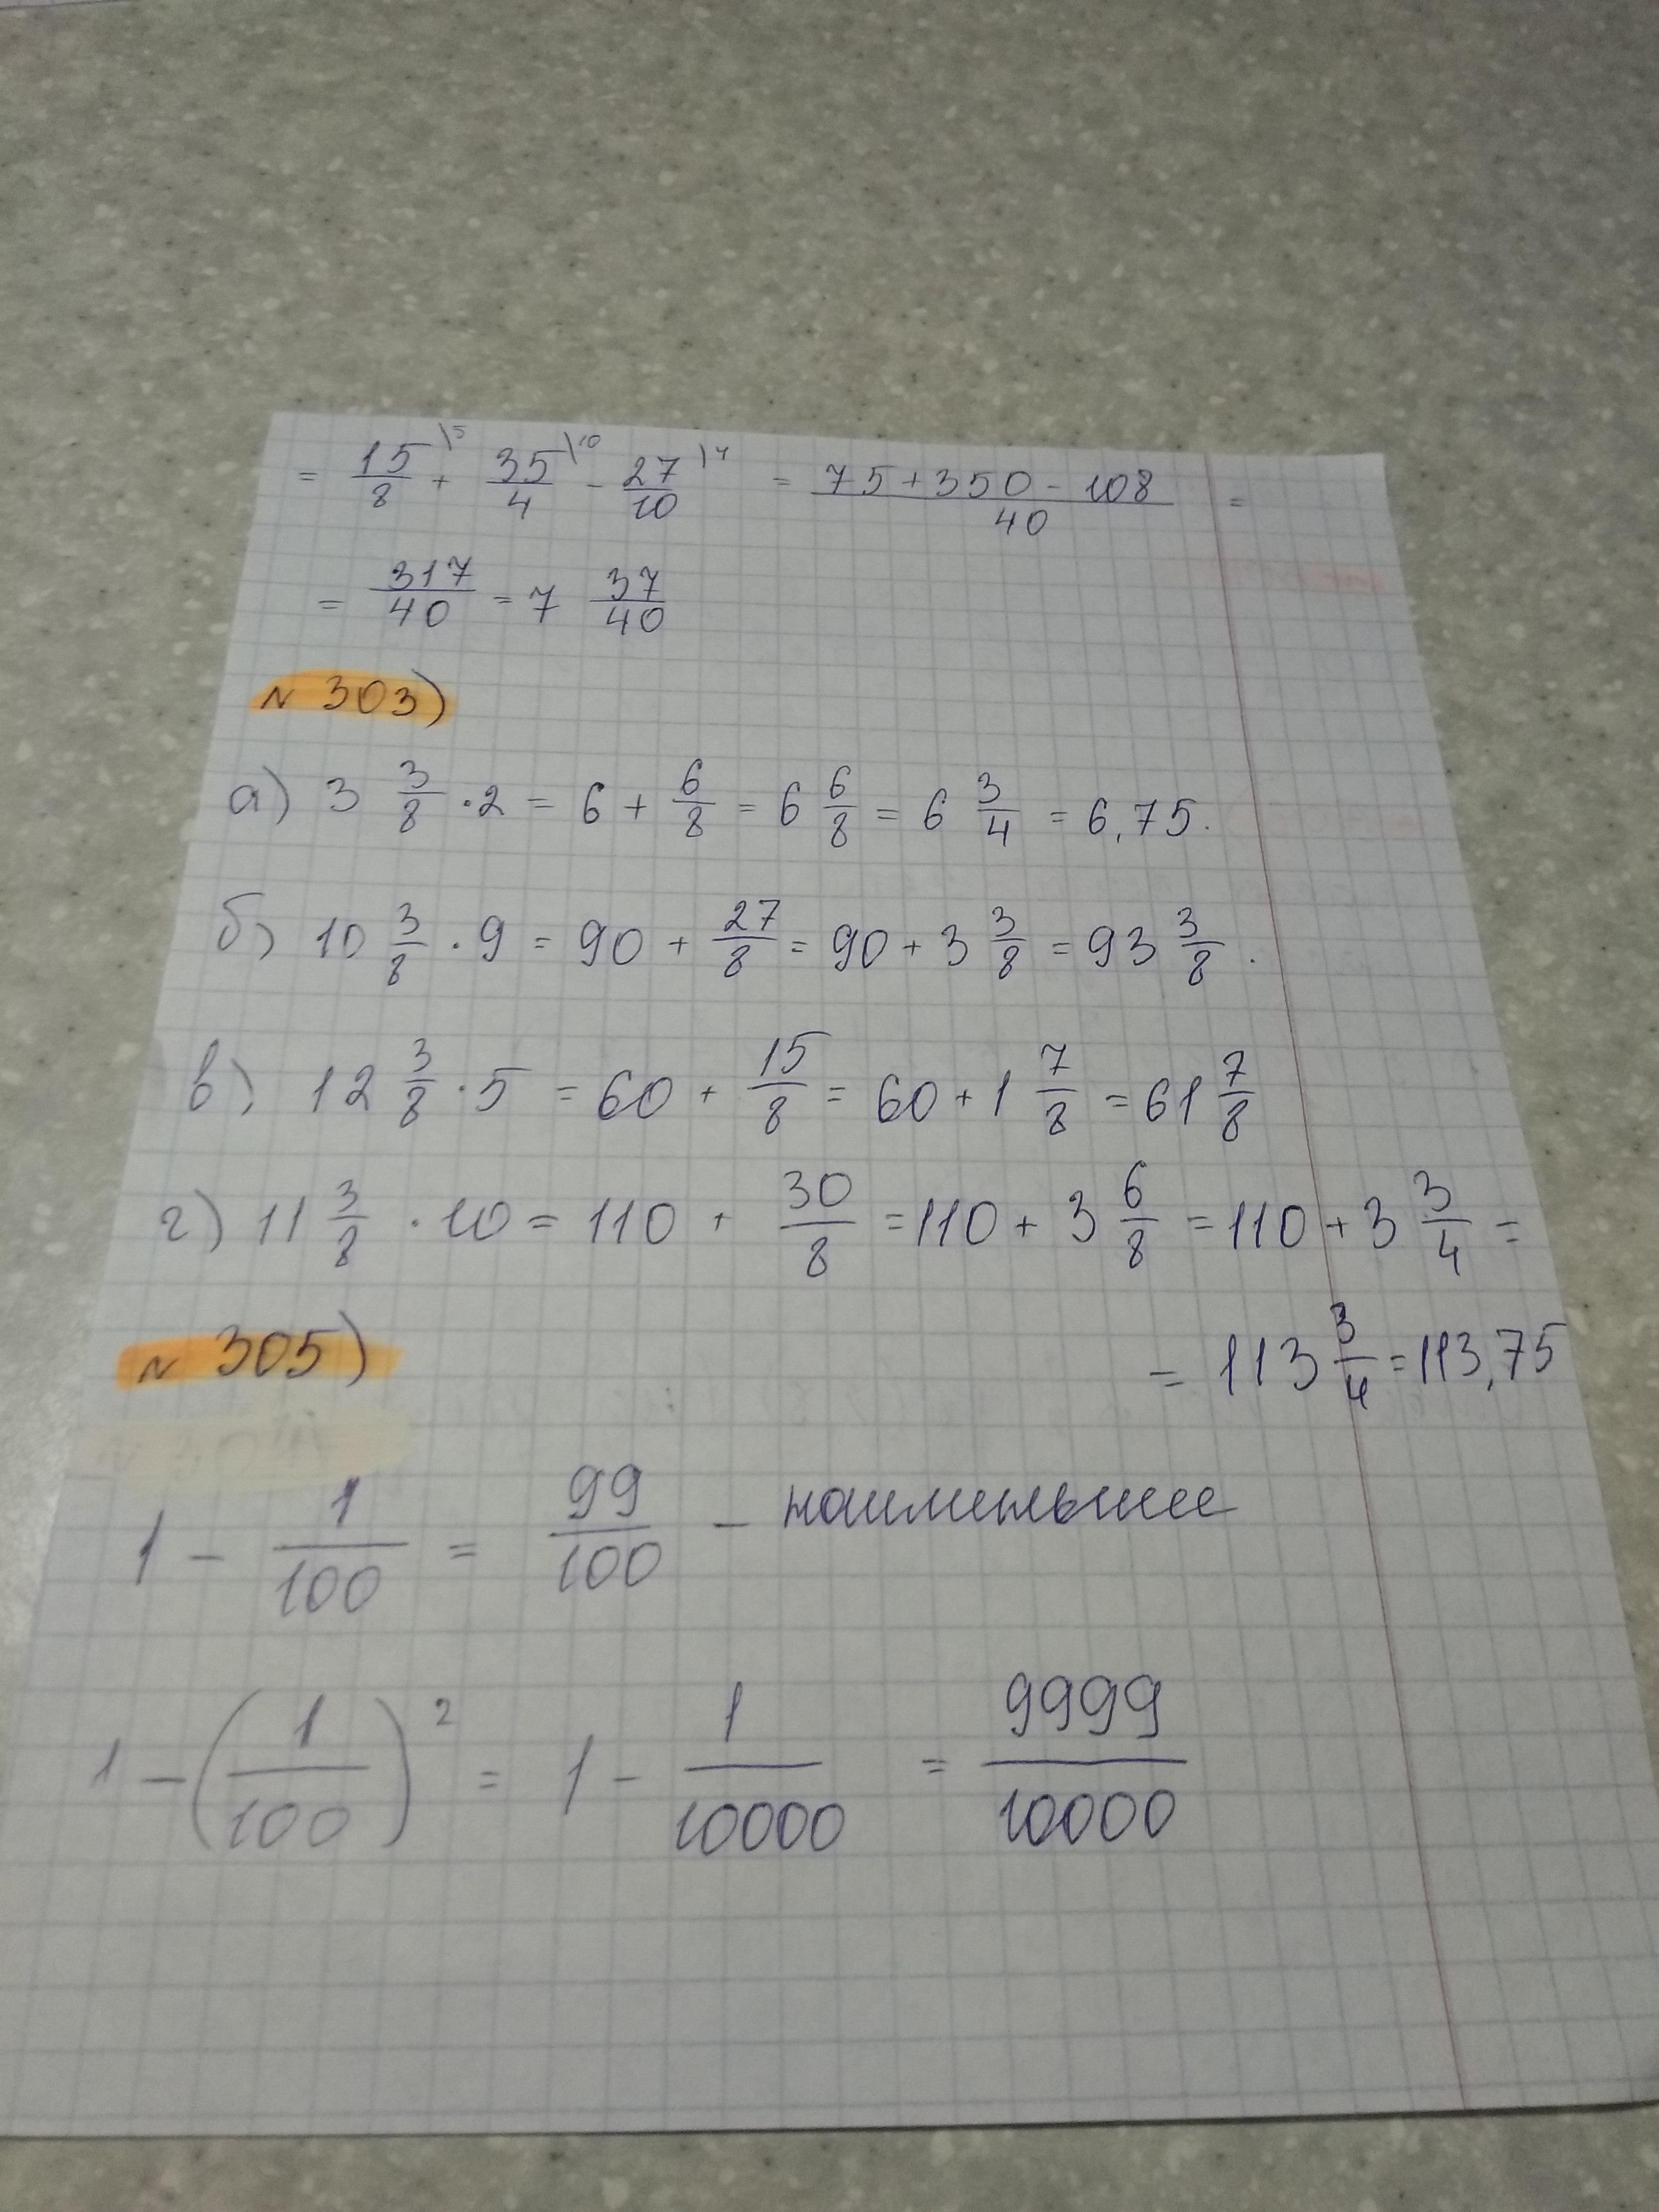 = 15/8 \5 + 35/4 \10 - 27/10 \4 = (75+350-108)/40 =
= 317/40 = 7 37/40
№ 303)
а) 3 3/8 · 2 = 6 + 6/8 = 6 6/8 = 6 3/4 = 6,75.
б) 10 3/8 · 9 = 90 + 27/8 = 90 + 3 3/8 = 93 3/8.
в) 12 3/8 · 5 = 60 + 15/8 = 60 + 1 7/8 = 61 7/8
г) 11 3/8 · 10 = 110 + 30/8 = 110 + 3 6/8 = 110 + 3 3/4 =
= 113 3/4 = 113,75
№ 305)
1 - 1/100 = 99/100 - наименьшее
1 - (1/100)² = 1 - 1/10000 = 9999/10000